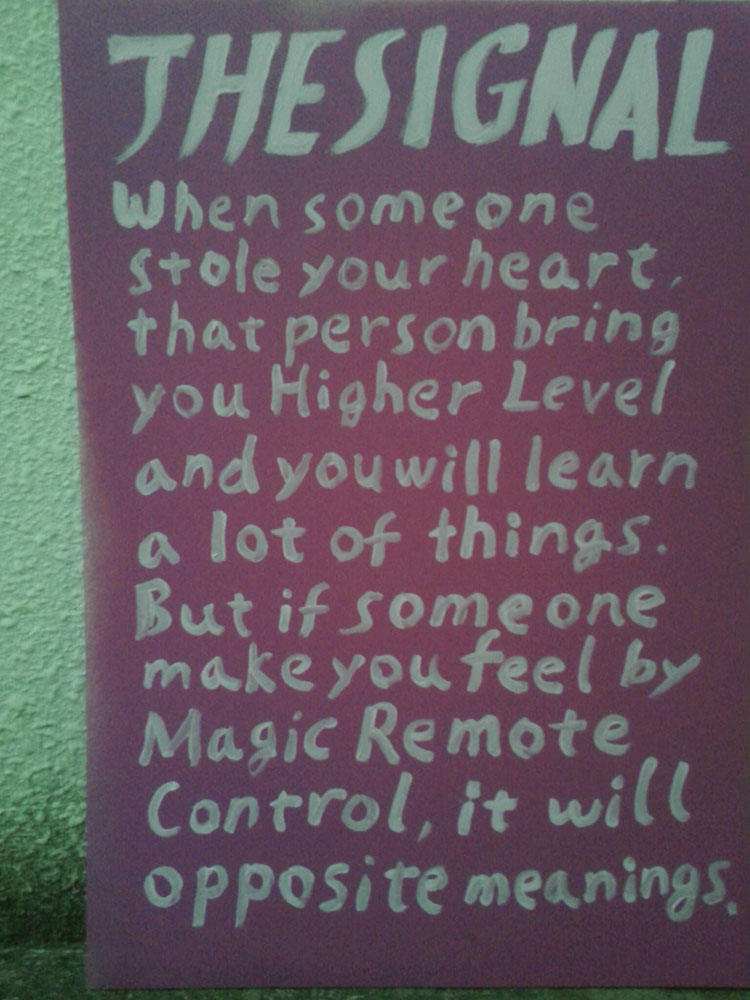 THE SIGNAL
When someone
stole your heart,
that person bring
you Higher Level
and you will learn
a lot of things.
But if someone
make you feel by
Magic Remote
Control, it will
opposite meanings.